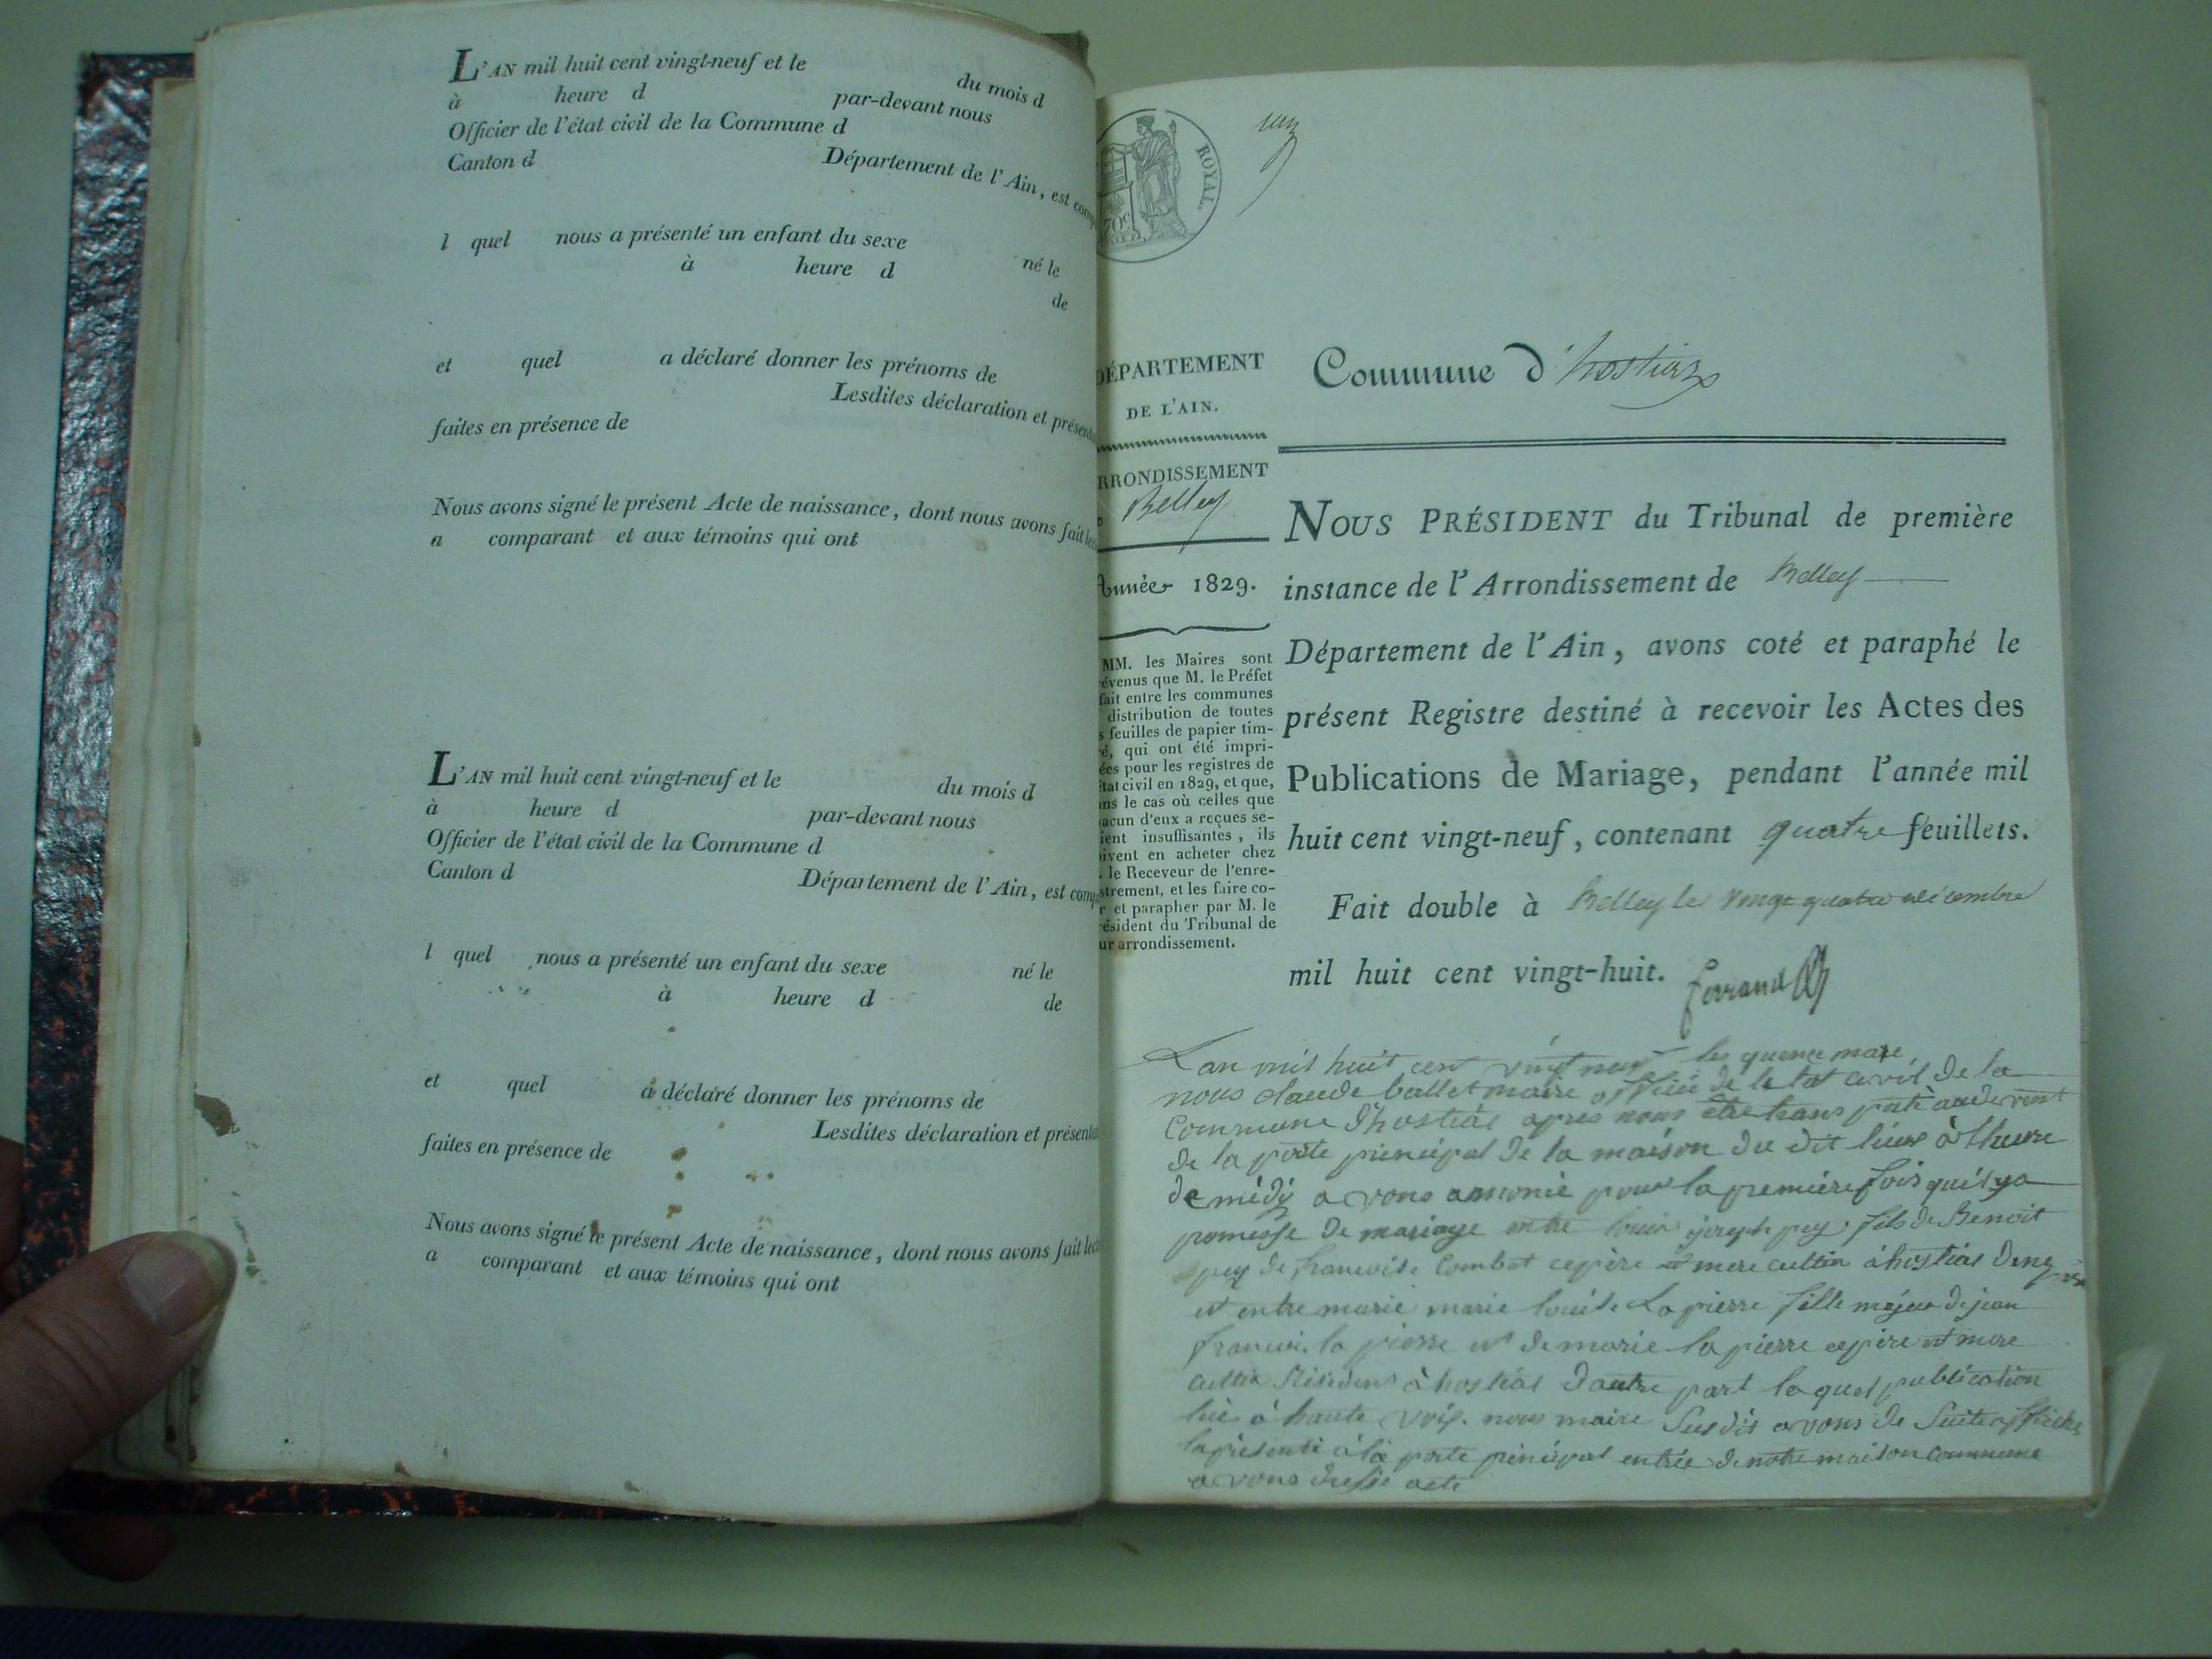 L'AN mil huit cent vingt-neuf et le du mois d
à heure d par-devant nous
Officier de l'état civil de la Commune d
Canton d Département de l'Ain, est comp
l quel nous a présenté un enfant du sexe né le
à heure d de
et quel a déclaré donner les prénoms de
Lesdites déclaration et présenta
faites en présence de
Nous avons signé le présent Acte de naissance, dont nous avons fait lec
a comparant et aux témoins qui ont
L'AN mil huit cent vingt-neuf et le du mois d
à heure d par-devant nous
Officier de l'état civil de la Commune d
Canton d Département de l'Ain, est comp
l quel nous a présenté un enfant du sexe né le
à heure d de
et quel a déclaré donner les prénoms de
Lesdites déclaration et présenta
faites en présence de
Nous avons signé le présent Acte de naissance, dont nous avons fait lec
a comparant et aux témoins qui ont
ROYAL.
70c
un
DÉPARTEMENT
DE L'AIN.
RRONDISSEMENT
Belley
Année 1829.
MM. les Maires sont
évenus que M. le Préfet
fait entre les communes
distribution de toutes
s feuilles de papier tim-
é, qui ont été impri-
ées pour les registres de
état civil en 1829, et que,
ans le cas où celles que
acun d'eux a reçues se-
ient insuffisantes, ils
ivent en acheter chez
. le Receveur de l'enre-
strement, et les faire co-
r et parapher par M. le
ésident du Tribunal de
ur arrondissement.
Commune d'hostiaz
NOUS PRÉSIDENT du Tribunal de première
instance de l'Arrondissement de Belley
Département de l'Ain, avons coté et paraphé le
présent Registre destiné à recevoir les Actes des
Publications de Mariage, pendant l'année mil
huit cent vingt-neuf, contenant quatre feuillets.
Fait double à Belley le vingt quatre décembre
mil huit cent vingt-huit. ferrand
L an mil huit cent vingt neuf les quence mare
nous claude ballet maire officié de le tat civil de la
Commune d'hostiar apres nous être trans porté audevent
de la porte priencipal de la maison du dit lieux à lheure
de midÿ avons anonié pour la premiére fois quil ya
promesse de mariage entre louis joseph pey fils de Benoit
pey de francoise Combet cepère et mere cultiv à hostiar
et entre marie marie louise Lapierre fille majeur de jean
francoi la pierre et de marie la pierre cepére et mere
à hostiar dautre part laquel publication
lue à haute voix. nous maire susdit avons de suite affiché
la présente à la porte priencipal entrée de notre maison commune
avons dressé acte